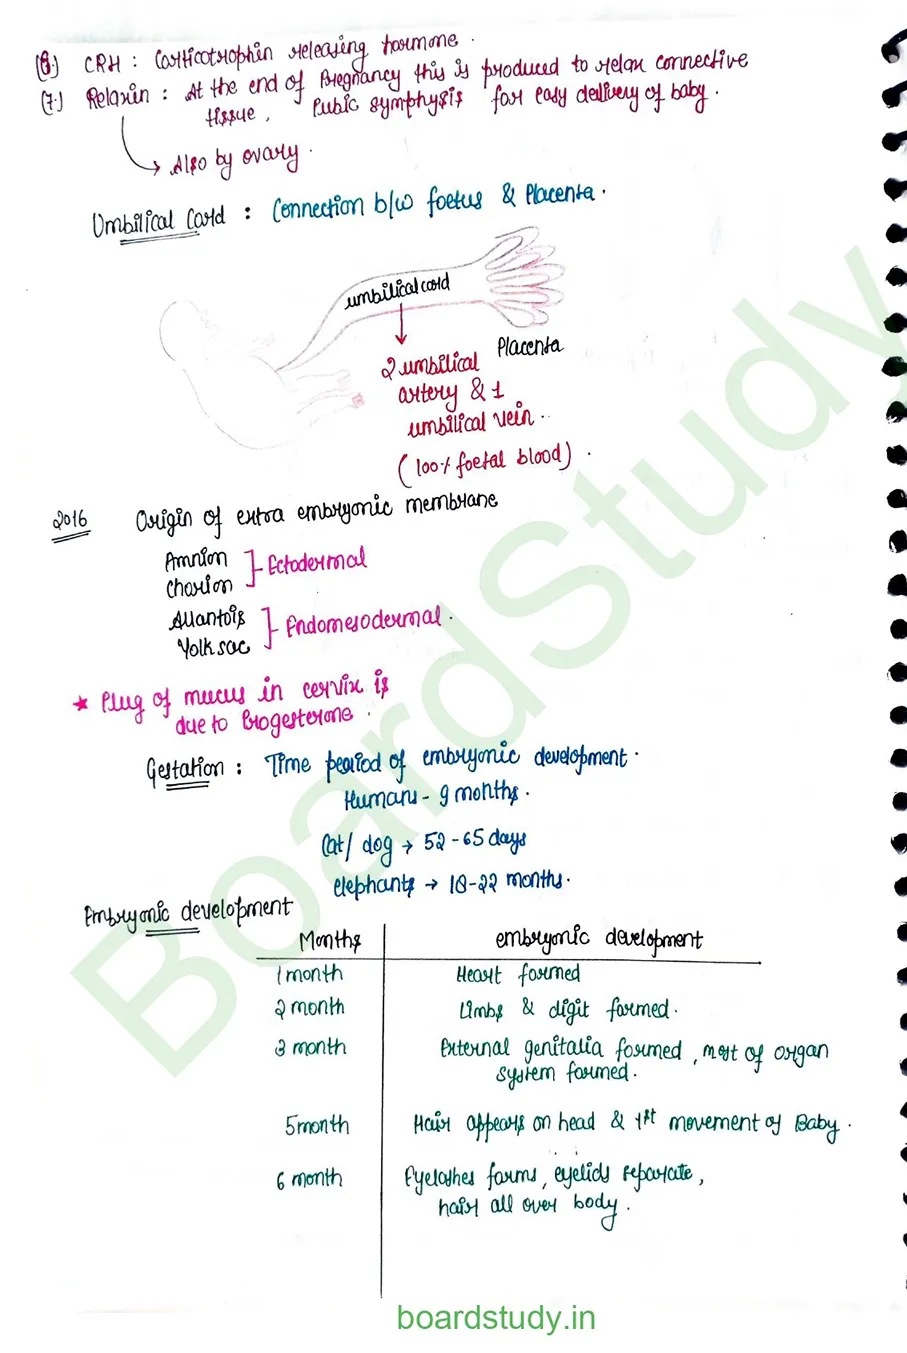 (6.) CRH : Corticotrophin releasing hormone.
(7.) Relaxin : At the end of Pregnancy this is produced to relax connective
tissue, Pubic symphysis for easy delivery of baby.
→ Also by ovary.
Umbilical Cord : Connection b/w foetus & Placenta.
umbilical cord
Placenta
2 umbilical
artery & 1
umbilical vein..
(100% foetal blood).
2016 Origin of extra embryonic membrane
Amnion
Chorion
Ectodermal
Allantois
Yolk sac
Endomesodermal.
★ Plug of mucus in cervix is
due to Progesterone.
Gestation : Time period of embryonic development.
Humans - 9 months.
Cat/ dog → 52-65 days
elephants → 18-22 months.
Embryonic development
Months embryonic development
1 month Heart formed
2 month Limbs & digit formed.
3 month External genitalia formed, most of organ
system formed.
5 month Hair appears on head & 1st movement of Baby.
6 month Eyelashes forms, eyelids separate,
hair all over body.
BoardStudy
boardstudy.in